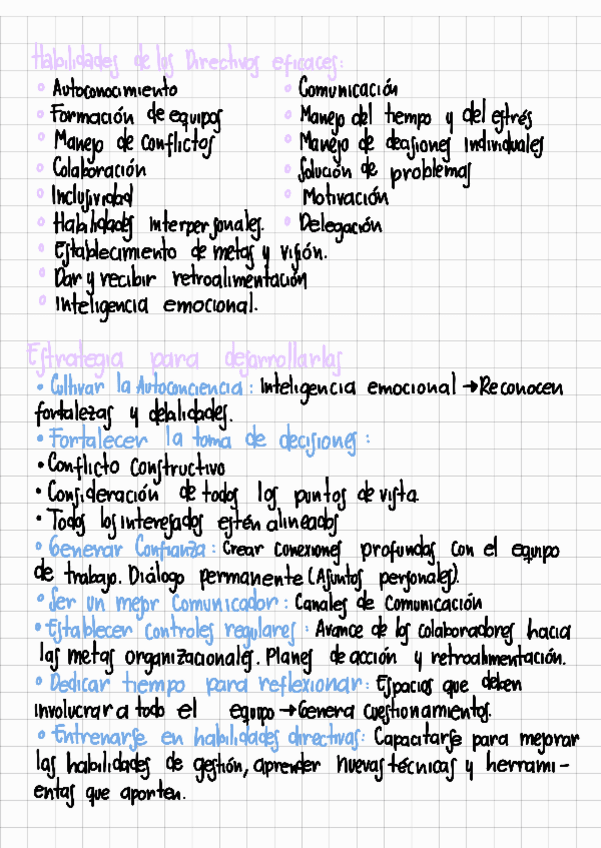 Habilidades de los Directivos eficaces:
• Autoconocimiento
• Comunicación
• Formación de equipos
• Manejo del tiempo y del estrés
• Manejo de conflictos
• Manejo de decisiones individuales
• Colaboración
• Solución de problemas
• Inclusividad
• Motivación
• Habilidades interpersonales.
• Delegación
• Establecimiento de metas y visión.
• Dar y recibir retroalimentación
• Inteligencia emocional.
Estrategia para desarrollarlas
• Cultivar la Autoconciencia: Inteligencia emocional → Reconocen
fortalezas y debilidades.
• Fortalecer la toma de decisiones:
• Conflicto Constructivo
• Consideración de todos los puntos de vista.
• Todos los interesados estén alineados
• Generar Confianza: Crear conexiones profundas con el equipo
de trabajo. Diálogo permanente (Asuntos personales).
• Ser un mejor comunicador: Canales de Comunicación
• Establecer controles regulares: Avance de los colaboradores hacia
las metas organizacionales. Planes de acción y retroalimentación.
• Dedicar tiempo para reflexionar: Espacios que deben
involucrar a todo el equipo → Genera cuestionamientos.
• Entrenarse en habilidades directivas: Capacitarse para mejorar
las habilidades de gestión, aprender nuevas técnicas y herrami-
entas que aporten.